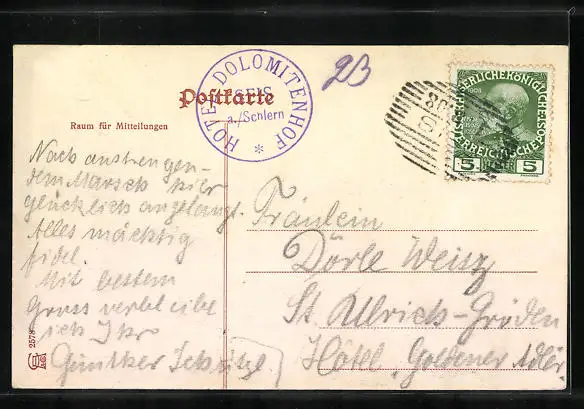 HOTEL DOLOMITENHOF
SEIS
a./Schlern
*
23
Postkarte
Raum für Mitteilungen
Nach anstrengen-
dem Marsch hier
glücklich angelangt.
Alles mächtig
fidel.
Mit bestem
Gruss verbleibe
ich Ihr
Günther
Fräulein
Dörle Weisz
St. Ullrich-Gröden
Hôtel „Goldener Adler"
KAISERLICHE KÖNIGLICHE
ÖSTERREICHISCHE POST
1908
5 HELLER 5
2578